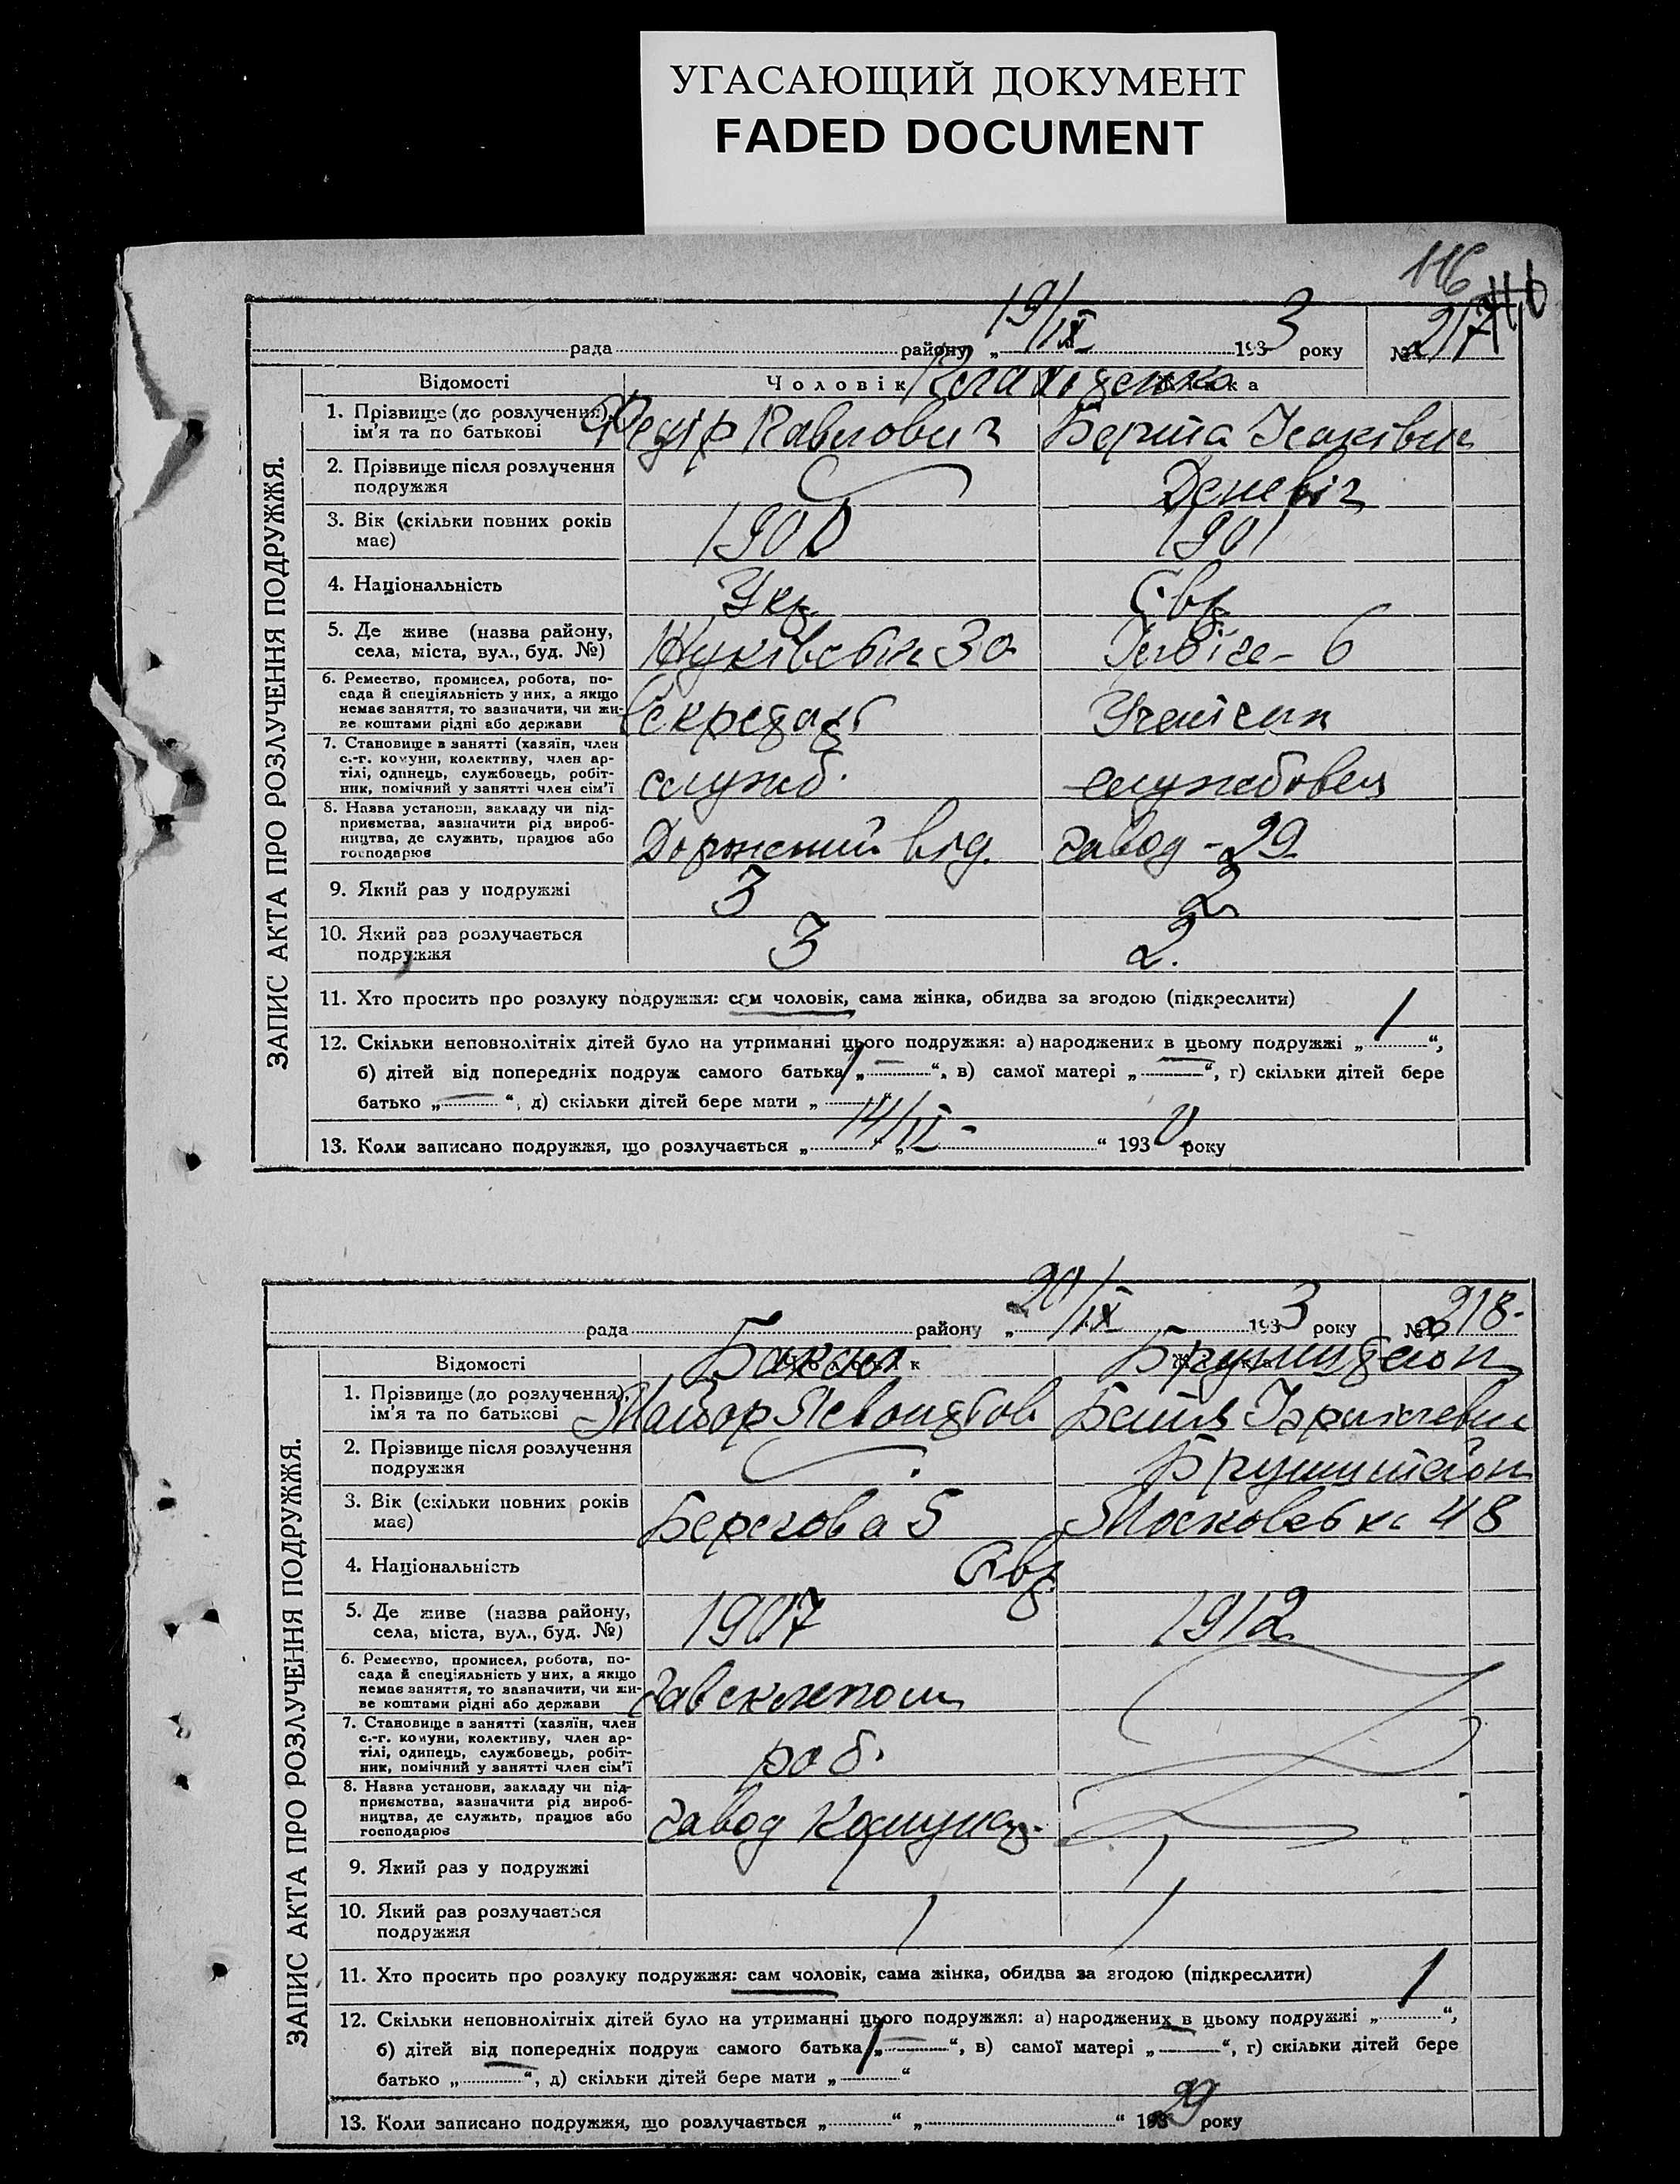 УГАСАЮЩИЙ ДОКУМЕНТ
FADED DOCUMENT
116
рада району „19/IX 1933 року № 217
Відомості Чоловік Жінка
ЗАПИС АКТА ПРО РОЗЛУЧЕННЯ ПОДРУЖЖЯ.
1. Прізвище (до розлучення), Федір Павлович Берта Ісаківна
ім'я та по батькові
2. Прізвище після розлучення
подружжя
3. Вік (скільки повних років 1900 1901
має)
4. Національність Укр Євр
5. Де живе (назва району, 30 6
села, міста, вул., буд. №)
6. Ремество, промисел, робота, по- Секретар
сада й спеціяльність у них, а якщо
немає заняття, то зазначити, чи жи-
ве коштами рідні або держави
7. Становище в занятті (хазяїн, член службб. службовець
с.-г. комуни, колективу, член ар-
тілі, одинець, службовець, робіт-
ник, помічний у занятті член сім'ї
8. Назва установи, закладу чи під- від. завод - 29
приємства, зазначити рід вироб-
ництва, де служить, працює або
господарює
9. Який раз у подружжі 3 2
10. Який раз розлучається 3 2.
подружжя
11. Хто просить про розлуку подружжя: сам чоловік, сама жінка, обидва за згодою (підкреслити)
12. Скільки неповнолітніх дітей було на утриманні цього подружжя: а) народжених в цьому подружжі „ 1 “,
б) дітей від попередніх подруж самого батька „ — “, в) самої матері „ — “, г) скільки дітей бере
батько „ — “, д) скільки дітей бере мати „ 1 “
13. Коли записано подружжя, що розлучається „ 14/ “ „ “ 1930 року
рада району „20/IX 1933 року № 218
Відомості Чоловік Жінка
ЗАПИС АКТА ПРО РОЗЛУЧЕННЯ ПОДРУЖЖЯ.
1. Прізвище (до розлучення),
ім'я та по батькові
2. Прізвище після розлучення Брумштейн
подружжя
3. Вік (скільки повних років Берегова 5 Московська 48
має)
4. Національність Євр
5. Де живе (назва району, 1907 1912
села, міста, вул., буд. №)
6. Ремество, промисел, робота, по- Завскладом
сада й спеціяльність у них, а якщо
немає заняття, то зазначити, чи жи-
ве коштами рідні або держави
7. Становище в занятті (хазяїн, член роб.
с.-г. комуни, колективу, член ар-
тілі, одинець, службовець, робіт-
ник, помічний у занятті член сім'ї
8. Назва установи, закладу чи під- завод Комунар.
приємства, зазначити рід вироб-
ництва, де служить, працює або
господарює
9. Який раз у подружжі 1 1
10. Який раз розлучається 1 1
подружжя
11. Хто просить про розлуку подружжя: сам чоловік, сама жінка, обидва за згодою (підкреслити)
12. Скільки неповнолітніх дітей було на утриманні цього подружжя: а) народжених в цьому подружжі „ 1 “,
б) дітей від попередніх подруж самого батька „ — “, в) самої матері „ — “, г) скільки дітей бере
батько „ — “, д) скільки дітей бере мати „ 1 “
13. Коли записано подружжя, що розлучається „ “ „ “ 1929 року